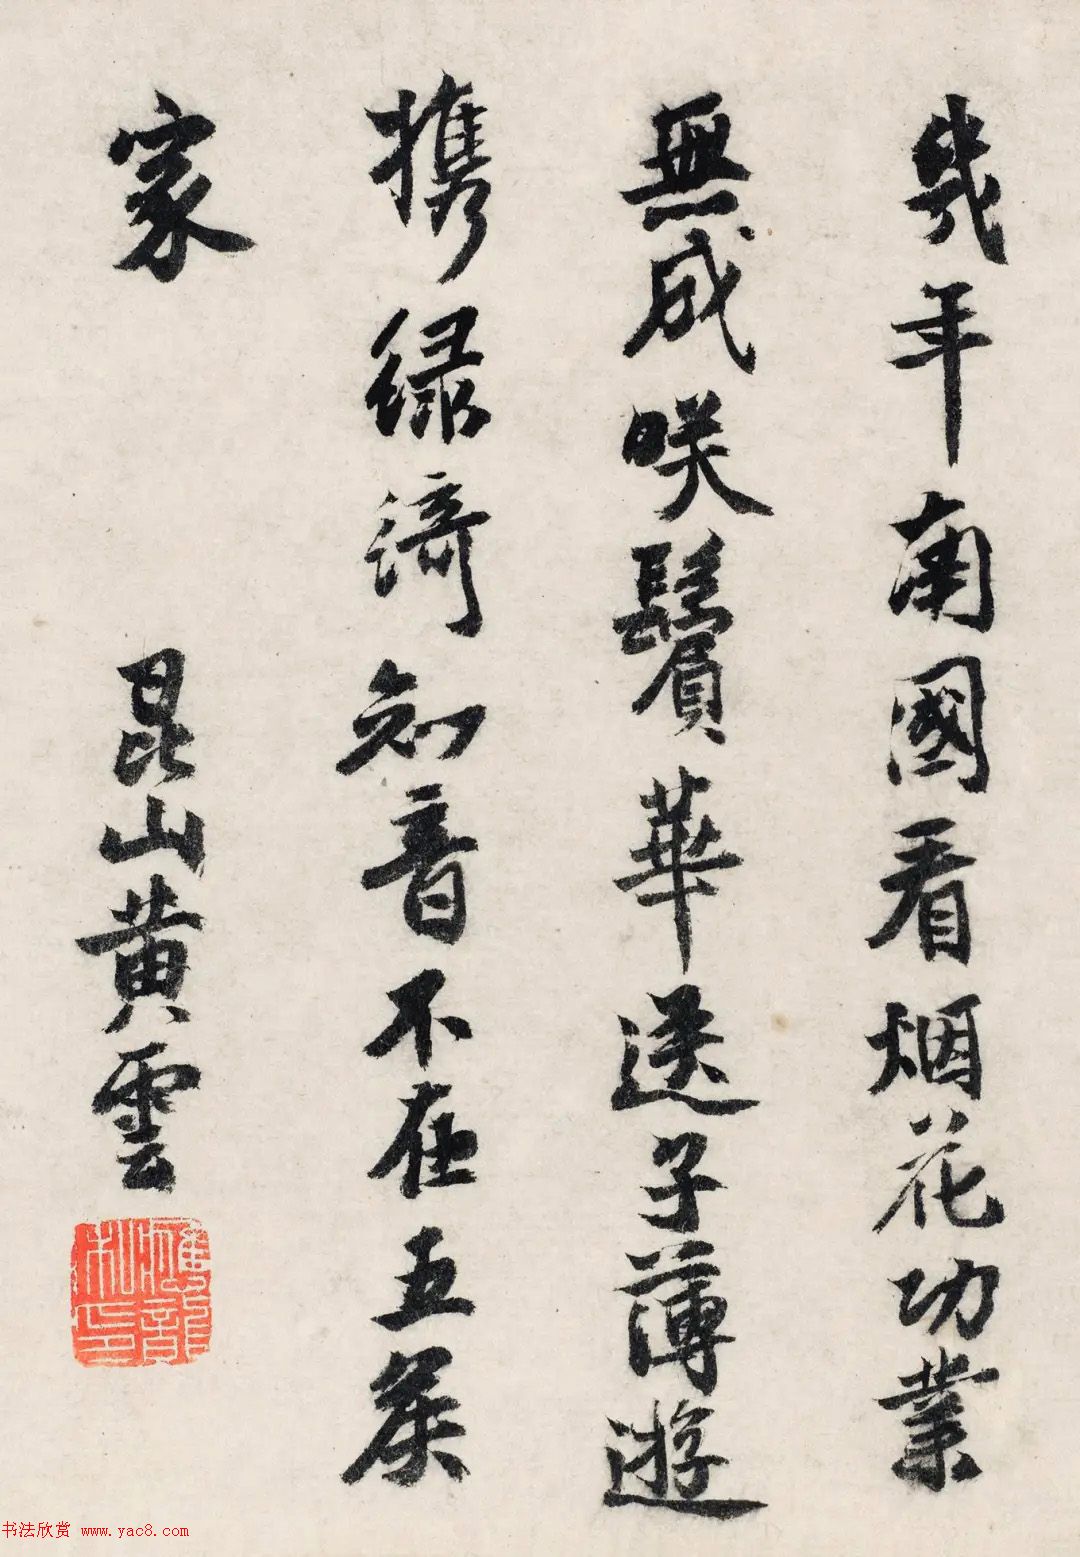 幾年南國看烟花功業
無成咲鬢華送子薄遊
携綠綺知音不在五侯
家
昆山黄雲
书法欣赏 www.yac8.com